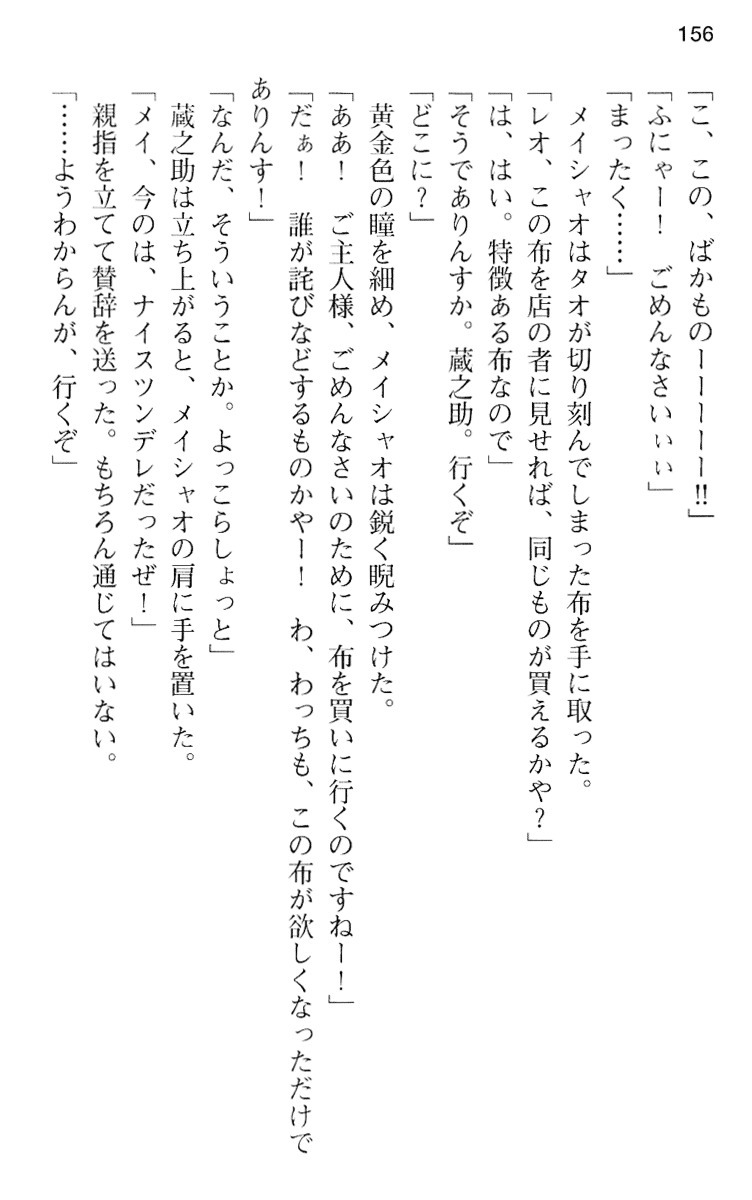 156
「こ、この、ばかものーーーーー!!」
「ふにゃー！　ごめんなさいぃぃ」
「まったく……」
　メイシャオはタオが切り刻んでしまった布を手に取った。
「レオ、この布を店の者に見せれば、同じものが買えるかや？」
「は、はい。特徴ある布なので」
「そうでありんすか。蔵之助。行くぞ」
「どこに？」
　黄金色の瞳を細め、メイシャオは鋭く睨みつけた。
「ああ！　ご主人様、ごめんなさいのために、布を買いに行くのですねー！」
「だぁ！　誰が詫びなどするものかやー！　わ、わっちも、この布が欲しくなっただけで
ありんす！」
「なんだ、そういうことか。よっこらしょっと」
　蔵之助は立ち上がると、メイシャオの肩に手を置いた。
「メイ、今のは、ナイスツンデレだったぜ！」
　親指を立てて賛辞を送った。もちろん通じてはいない。
「……ようわからんが、行くぞ」